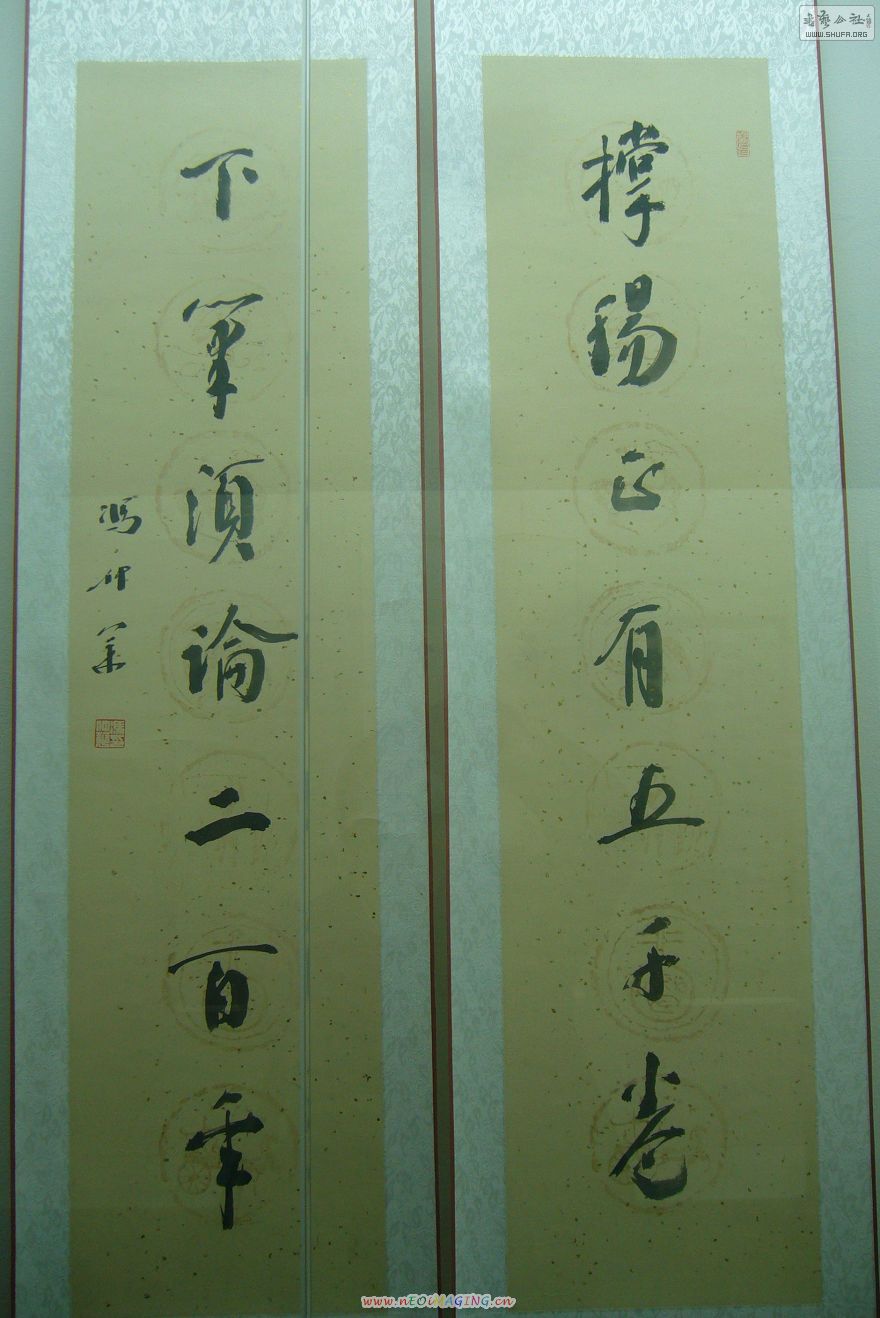 書藝公社
WWW.SHUFA.ORG
撐腸正有五千卷
下筆須論二百年
馮
www.nEOiMAGING.cn